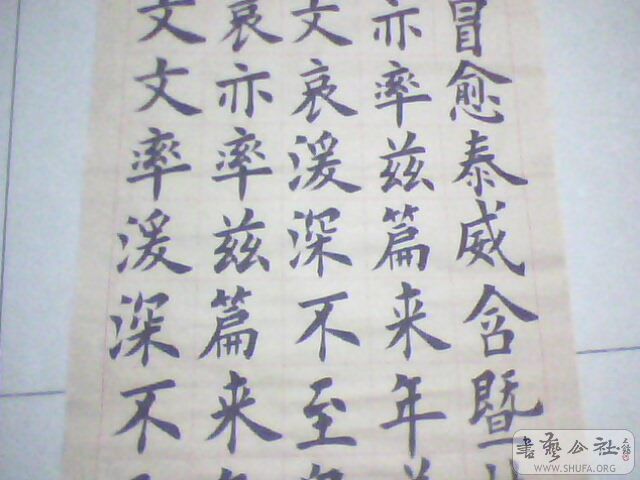 冒愈泰威含暨
亦率兹篇来年
文哀湲深不至
哀亦率兹篇来
文文率湲深不
書藝公社
WWW.SHUFA.ORG